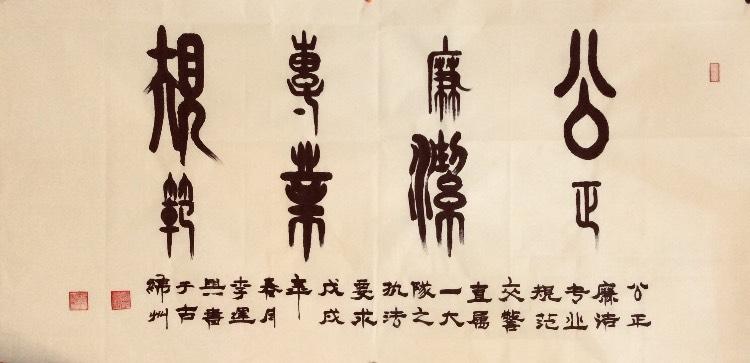 公正
廉潔
專業
規範
公正
廉洁
专业
规范
交警
直属
一大
队之
执法
要求
戊戌
年
春月
李運
興書
于古
綿州